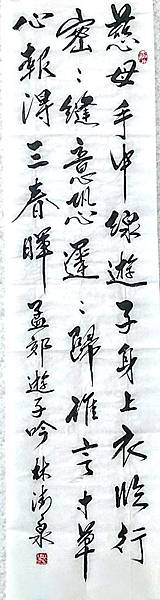 慈母手中線遊子身上衣臨行
密:縫意恐遲:歸誰言寸草
心報得三春暉 孟郊遊子吟 林清泉